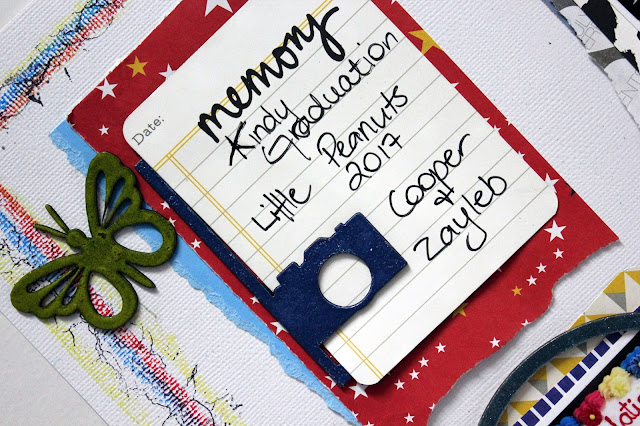 memory
Date:
Kindy
Graduation
Little Peanuts
2017
Cooper
&
Zayleb